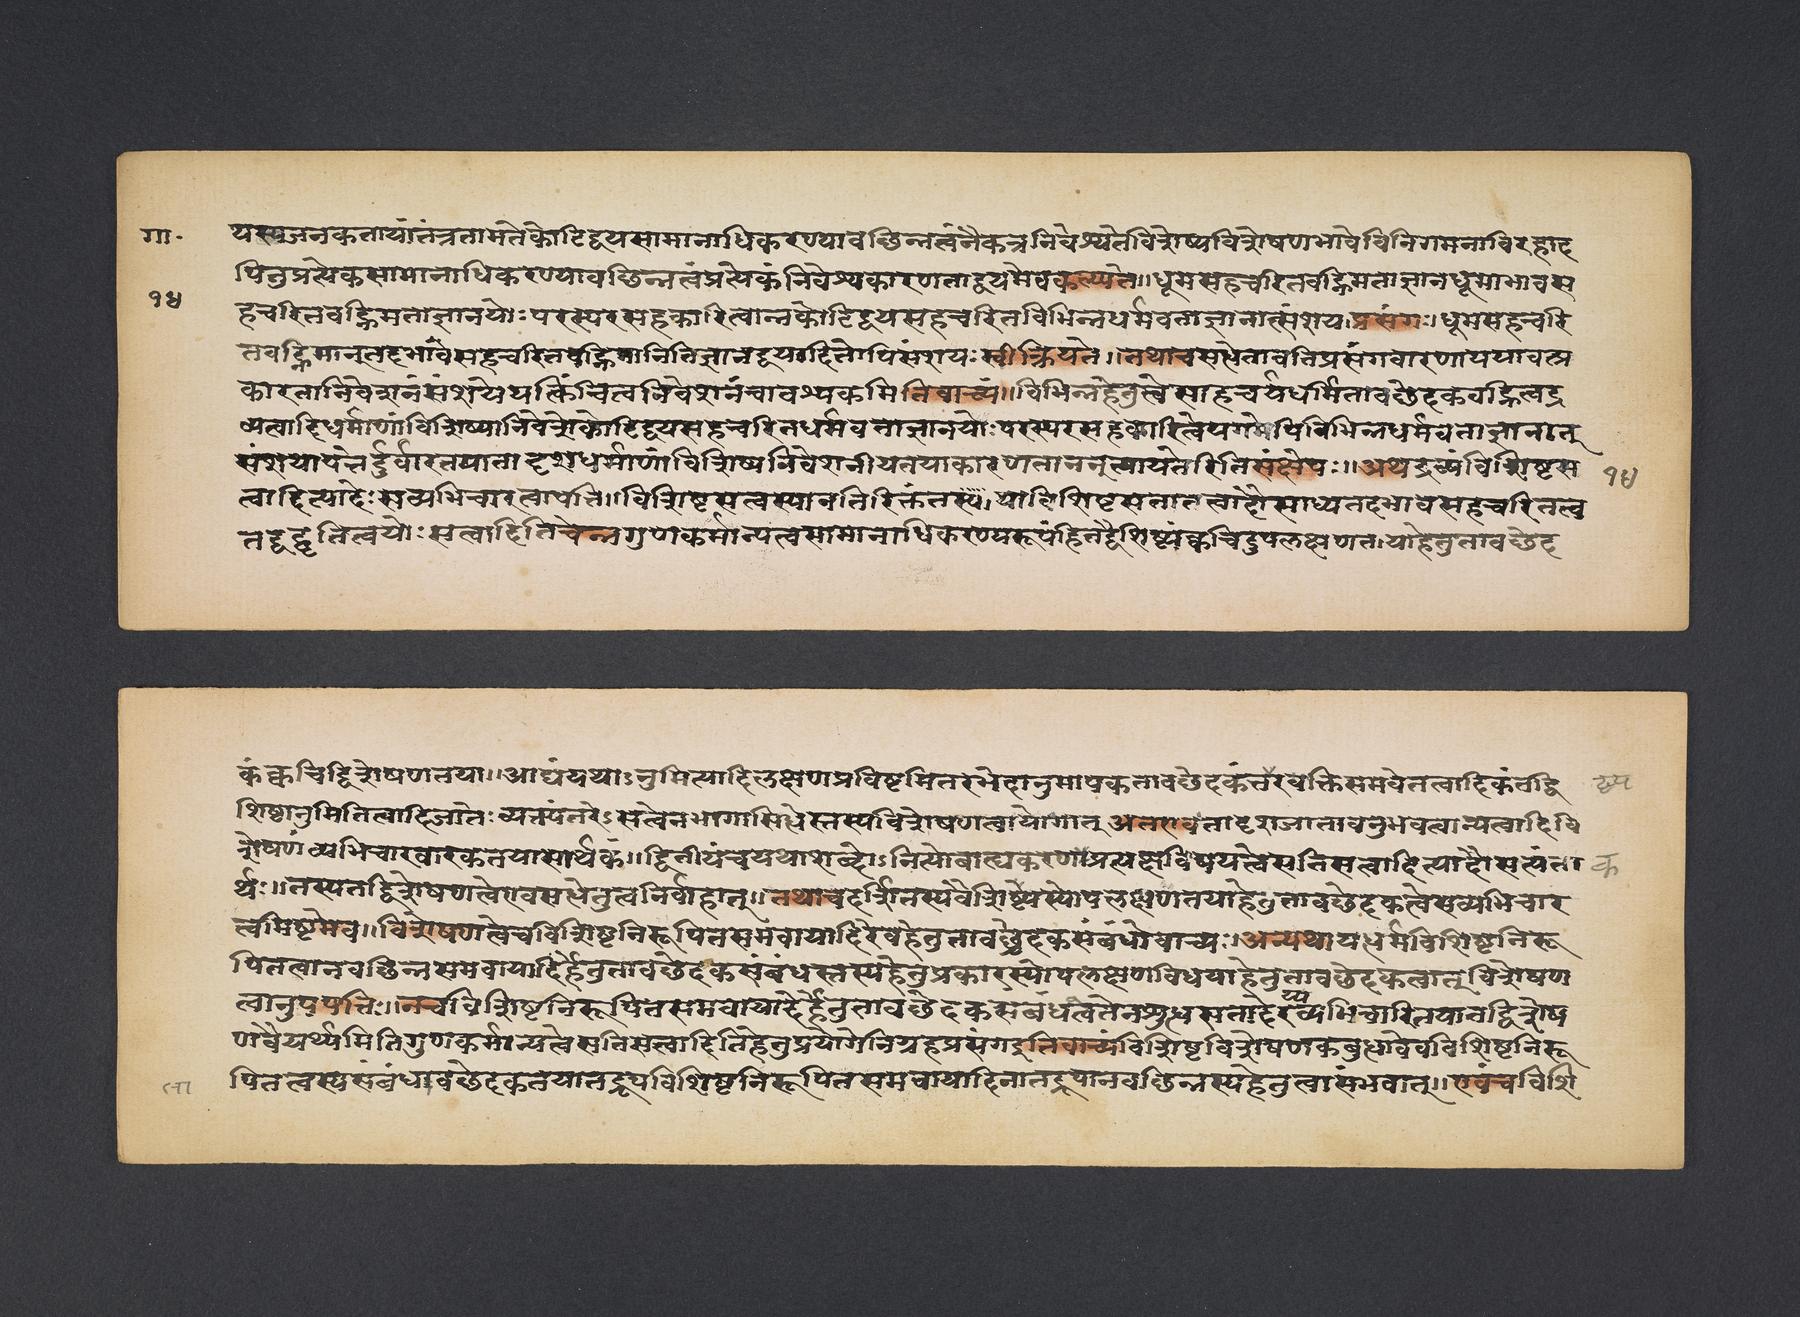 गा॰
१४
यस्य जनकतायां तंत्रतामते कोटिद्वयसामानाधिकरण्यावछिन्नत्वं नैकत्र निवेश्यते विशेष्यविशेषणभावे विनिगमनाविरहाद
पि तु प्रत्येकसामानाधिकरण्यावछिन्नत्वं प्रत्येकं निवेश्य कारणताद्वयमेव कल्प्यते ॥ धूमसहचरितवह्निमताज्ञानधूमाभावस
हचरितवह्निमताज्ञानयोः परस्परसहकारित्वान्न कोटिद्वयसहचरितविभिन्नधर्मवताज्ञानात्संशय प्रसंगः । धूमसहचरि
तवह्निमानुतदभावसहचरितवह्निमानितिज्ञानद्वयादितोपि संशयः स्वीक्रियते ॥ तथा च सत्वेतावति प्रसंगवारणाय यावत्प्र
कारतानिवेशनं संशये यत्किंचित्व निवेशनं चावश्यकमिति वाच्यं ॥ विभिन्नहेतुत्वे साहचर्यधर्मितावछेदकवह्नित्वद्र
व्यत्वादिधर्माणां विशिष्यानिवेशे कोटिद्वयसहचरितधर्मवताज्ञानयोः परस्परसहकारित्वेपगमेपि विभिन्नधर्मवताज्ञानात्
संशयापत्तेर्दुर्वारतया तादृशधर्माणां विशिष्य निवेशनीयतया कारणतानन्त्यापत्तेरिति संक्षेपः ॥ अथ द्रव्यं विशिष्टस
त्वादित्यादेः सव्यभिचारत्वापत्तिः ॥ विशिष्टसत्वस्यानतिरिक्तं तस्य या विशिष्टसतातत्वादौ साध्यतदभावसहचरितत्व
तद्वद्वृत्तित्वयोः सत्वादिति चेन्न गुणकर्मान्यत्वसामानाधिकरण्यरूपं हि तद्वैशिष्ट्यं क्वचिदुपलक्षणतया हेतुतावछेद
१४
कं क्वचिद्विशेषणतया ॥ आद्यं यथाऽनुमित्यादिलक्षणप्रविष्टमितरभेदानुमापकतावछेदकं तरव्यक्तिसमवेतत्वादिकं तद्वि
शिष्टानुमितित्वादिजातेः व्यत्त्यंतरेऽसत्वेन भागासिधेस्तस्य विशेषणत्वायोगात् अतएव तादृशजातावनुभवत्वान्यत्वादि वि
शेषणं व्यभिचारवारकतया सार्थकं ॥ द्वितीयं च यथा शब्दोऽनित्यो बाह्यकरणप्रत्यक्षविषयत्वे सति सत्वादित्यादौ सत्यंता
र्थः ॥ तस्य तद्विशेषणत्वे एव सधेतुत्वनिर्वाहात् ॥ तथा च दर्शितस्य वैशिष्ट्यस्योपलक्षणतया हेतुतावछेदकत्वे सव्यभिचार
त्वमिष्टमेव ॥ विशेषणत्वे च विशिष्टनिरूपितसमवायादिरेव हेतुतावछेदकसंबंधो वाच्यः । अन्यथा यधर्मविशिष्टनिरू
पितत्वानवछिन्नसमवायादिर्हेतुतावछेदकसंबंधस्तस्य हेतुप्रकारस्योपलक्षणविधया हेतुतावछेदकत्वात् विशेषण
त्वानुपपत्तिः ॥ न च विशिष्टनिरूपितसमवायादेर्हेतुतावछेदकसंबंधत्वे तेन शुधसतादेरव्यभिचारितया तद्विशेष
णवैयर्थ्यमिति गुणकर्मान्यत्वे सति सत्वादितिहेतुप्रयोगे निग्रहप्रसंग इति वाच्यं विशिष्टविशेषणकबुधावेव विशिष्टनिरू
पितत्वस्य संबंधावछेदकतया तद्रूपविशिष्टनिरूपितसमवायादिना तद्रूपानवछिन्नस्य हेतुत्वासंभवात् ॥ एवं च विशि